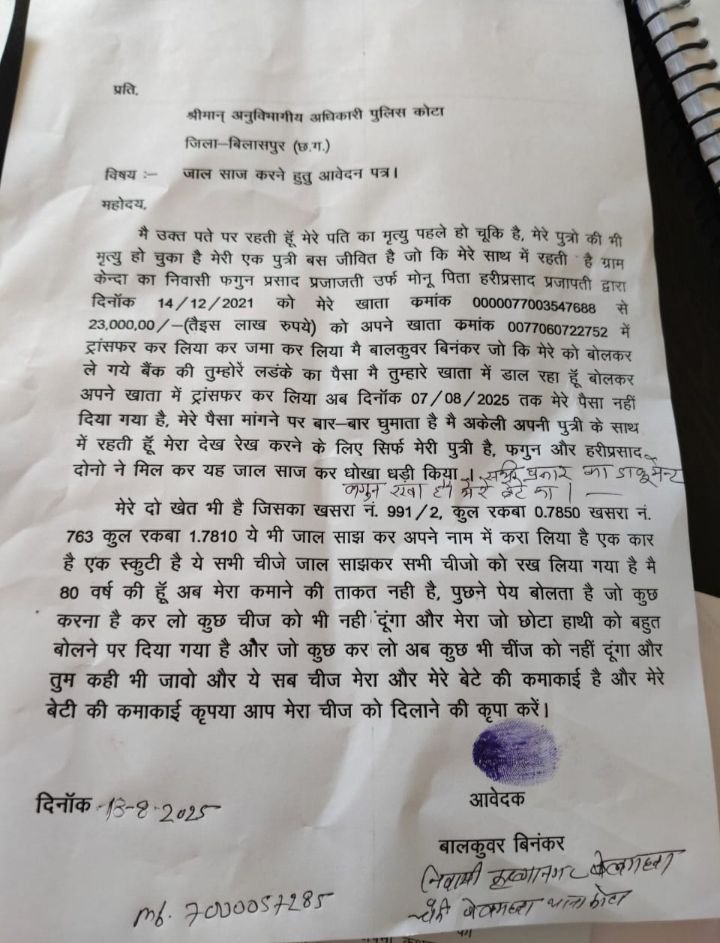 प्रति,
श्रीमान् अनुविभागीय अधिकारी पुलिस कोटा
जिला–बिलासपुर (छ.ग.)
विषय :– जाल साज करने हुतु आवेदन पत्र।
महोदय,
मै उक्त पते पर रहती हूँ मेरे पति का मृत्यु पहले हो चूकि है, मेरे पुत्रो की भी
मृत्यु हो चुका है मेरी एक पुत्री बस जीवित है जो कि मेरे साथ में रहती है ग्राम
केन्दा का निवासी फगुन प्रसाद प्रजाजती उर्फ मोनू पिता हरीप्रसाद प्रजापती द्वारा
दिनॉक 14/12/2021 को मेरे खाता कमांक 0000077003547688 से
23,000,00/–(तैइस लाख रुपये) को अपने खाता कमांक 0077060722752 में
ट्रांसफर कर लिया कर जमा कर लिया मै बालकुवर बिनंकर जो कि मेरे को बोलकर
ले गये बैंक की तुम्होरें लडंके का पैसा मै तुम्हारे खाता में डाल रहा हूँ बोलकर
अपने खाता में ट्रांसफर कर लिया अब दिनॉक 07/08/2025 तक मेरे पैसा नहीं
दिया गया है, मेरे पैसा मांगने पर बार–बार घुमाता है मै अकेली अपनी पुत्री के साथ
में रहती हूँ मेरा देख रेख करने के लिए सिर्फ मेरी पुत्री है, फगुन और हरीप्रसाद
दोनो ने मिल कर यह जाल साज कर धोखा धड़ी किया । सभी प्रकार का डाकूमेन्ट
फगुन रखा है मेरे बेटे का । —
मेरे दो खेत भी है जिसका खसरा नं. 991/2, कुल रकबा 0.7850 खसरा नं.
763 कुल रकबा 1.7810 ये भी जाल साझ कर अपने नाम में करा लिया है एक कार
है एक स्कुटी है ये सभी चीजे जाल साझकर सभी चीजो को रख लिया गया है मै
80 वर्ष की हूँ अब मेरा कमाने की ताकत नही है, पुछने पेय बोलता है जो कुछ
करना है कर लो कुछ चीज को भी नही दूंगा और मेरा जो छोटा हाथी को बहुत
बोलने पर दिया गया है और जो कुछ कर लो अब कुछ भी चींज को नहीं दूंगा और
तुम कही भी जावो और ये सब चीज मेरा और मेरे बेटे की कमाकाई है और मेरे
बेटी की कमाकाई कृपया आप मेरा चीज को दिलाने की कृपा करें।
दिनॉक -13-8-2025
आवेदक
बालकुवर बिनंकर
निवासी कृष्णानगर बेलगहना
चौकी बेलगहना थाना कोटा
mb. 7000057285